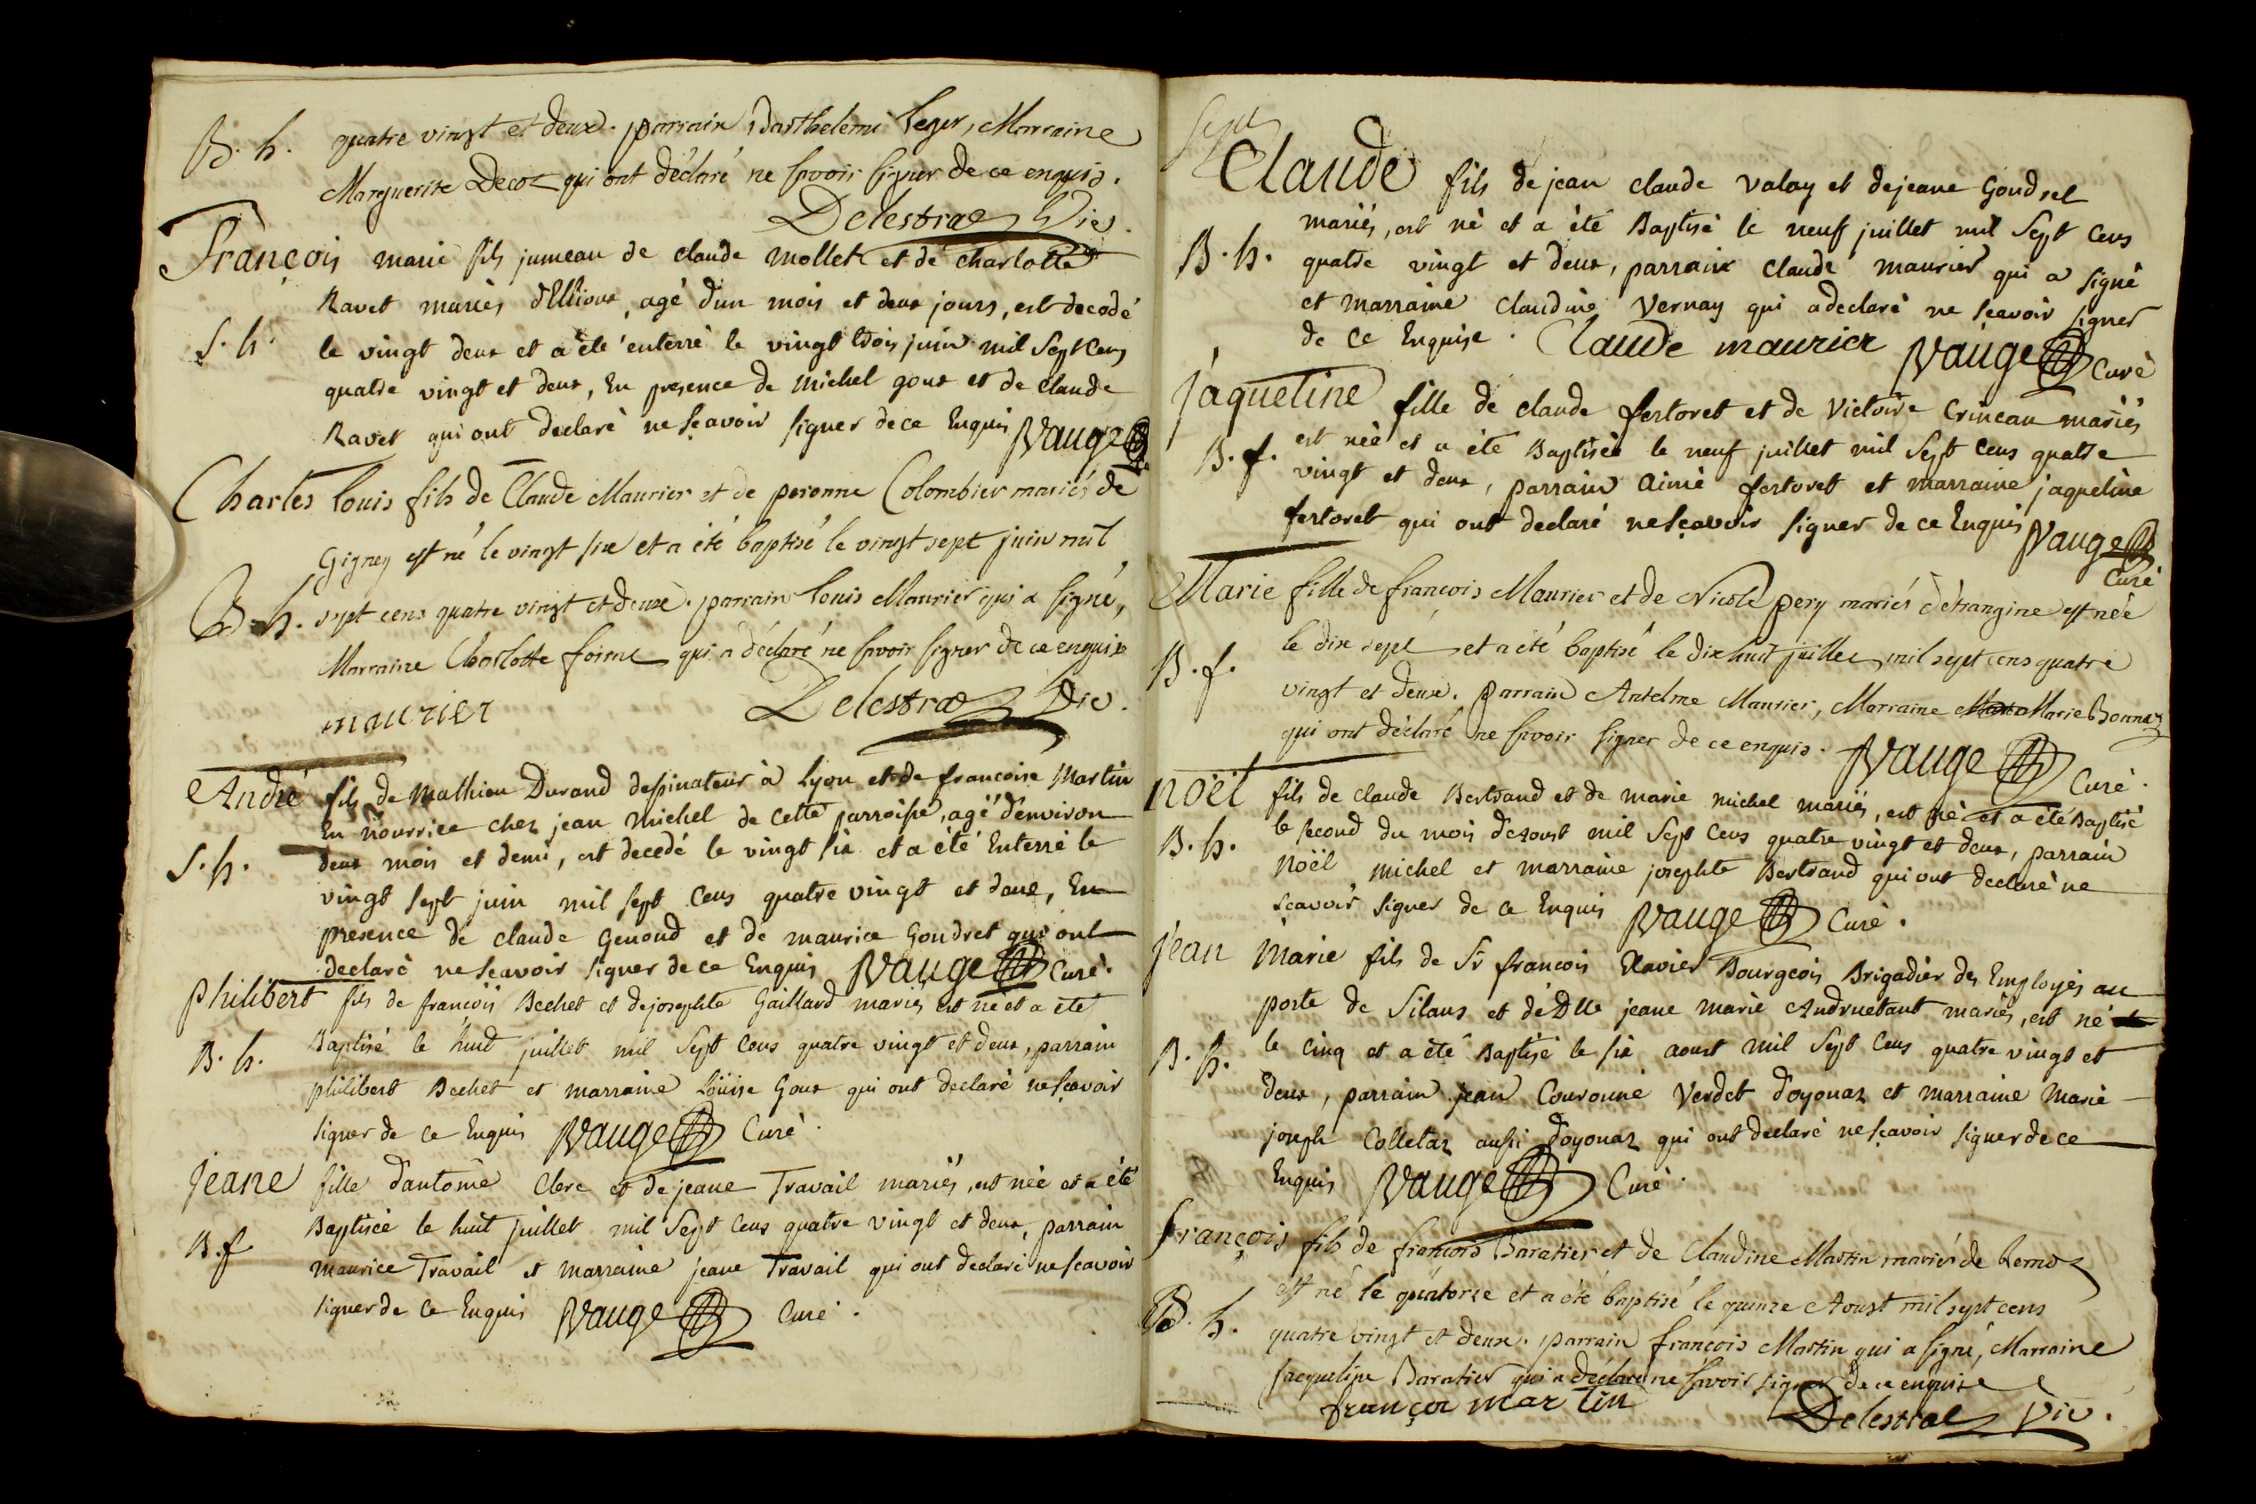 B. h. quatre vingt et deux. parrain Barthelemi leger, Marraine
Marguerite Decoz qui ont déclaré ne savoir signer de ce enquis.
Delestraz Vic.
François marie fils jumeau de claude mollet et de charlotte
Ravet mariés d'Ellioux, agé d'un mois et deux jours, est decedé
S. h. le vingt deux et a été enterré le vingt trois juin mil Sept Cens
quatre vingt et deux, En presence de michel goux et de claude
Ravet qui ont declaré ne sçavoir signer de ce Enquis Vauge
Charles louis fils de Claude Maurier et de peronne Colombier mariés de
Gigney est né le vingt six et a été baptisé le vingt sept juin mil
B. h. sept cens quatre vingt et deux. parrain louis Maurier qui a signé,
Marraine Charlotte foirne qui a déclaré ne savoir signer de ce enquise
maurier Delestraz Vic.
André fils de Mathieu Durand dessinateur à Lyon et de francoise Martin
En nourrice chez jean michel de cette parroisse, agé d'environ
S. h. deux mois et demi, est decedé le vingt six et a été Enterré le
vingt sept juin mil sept Cens quatre vingt et deux, En
presence de claude Genoud et de maurice Goudret qui ont
declaré ne scavoir signer de ce Enquis Vauge Curé.
philibert fils de francois Bechet et de josephte Gaillard mariés est né et a été
B. h. Baptisé le huit juillet mil Sept Cens quatre vingt et deux, parrain
philibert Bechet et marraine Loüise Goux qui ont declaré ne sçavoir
signer de ce Enquis Vauge Curé.
jeane fille d'antoine Clerc et de jeane Travail mariés, est née et a été
B. f. Baptisée le huit juillet mil Sept Cens quatre vingt et deux, parrain
maurice Travail et marraine jeane Travail qui ont declaré ne scavoir
signer de ce Enquis Vauge Curé.
Sept
Claude fils de jean claude valay et de jeane Goudret
mariés, est né et a été Baptisé le neuf juillet mil Sept Cens
B. h. quatre vingt et deux, parrain claude maurier qui a signé
et marraine claudine Vernay qui a declaré ne sçavoir signer
de ce Enquise. Claude maurier Vauge Curé
jaqueline fille de claude fertoret et de Victoire Crineau mariés
B. f. est née et a été Baptisée le neuf juillet mil Sept Cens quatre
vingt et deux, parrain aimé fertoret et marraine jaqueline
fertoret qui ont declaré ne sçavoir signer de ce Enquis Vauge
Curé
Marie fille de françois Maurier et de Nicole pery mariés d'étrangine est née
B. f. le dix sept et a été baptisé le dix huit juillet mil sept cens quatre
vingt et deux. parrain Antelme Maurier, Marraine Marie Bonnaz
qui ont déclaré ne savoir signer de ce enquis. Vauge Curé.
noël fils de claude Bertrand et de marie michel mariés, est né et a été Baptisé
B. h. le second du mois d'aoust mil Sept Cens quatre vingt et deux, parrain
noël michel et marraine josephte Bertrand qui ont declaré ne
sçavoir signer de ce Enquis Vauge Curé.
jean Marie fils de Sr francois Xavier Bourgeois Brigadier des Employés au
poste de Silans et de Dlle jeane marie Andruetant mariés, est né
B. h. le cinq et a été Baptisé le six aoust mil Sept Cens quatre vingt et
deux, parrain jean Couronné Verdet d'oyonaz et marraine Marie
joseph Colletaz aussi d'oyonaz qui ont declaré ne sçavoir signer de ce
Enquis Vauge Curé.
françois fils de françois Baratier et de Claudine Martin mariés de Lernoz
est né le quatorze et a été baptisé le quinze Aoust mil sept cens
B. h. quatre vingt et deux. parrain françois Martin qui a signé, Marraine
jacqueline Baratier qui a déclaré ne savoir signer de ce enquise
françoi martin Delestraz Vic.